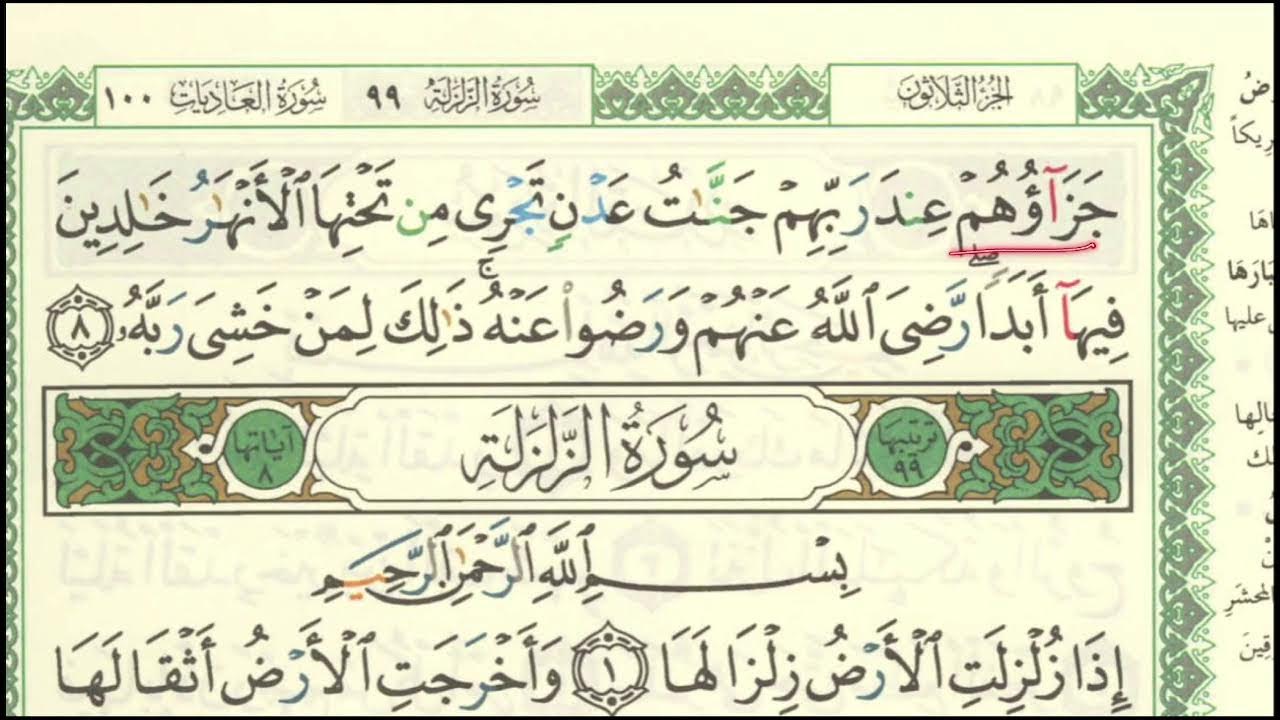 الجزء الثلاثون
سورة الزلزلة ٩٩ سورة العاديات ١٠٠
جَزَآؤُهُمْ عِندَ رَبِّهِمْ جَنَّٰتُ عَدْنٍ تَجْرِى مِن تَحْتِهَا ٱلْأَنْهَٰرُ خَٰلِدِينَ
فِيهَآ أَبَدًا ۖ رَّضِىَ ٱللَّهُ عَنْهُمْ وَرَضُوا۟ عَنْهُ ۚ ذَٰلِكَ لِمَنْ خَشِىَ رَبَّهُۥ ٨
ترتيبها ٩٩
سُورَةُ الزَّلْزَلَةِ
آياتها ٨
بِسْمِ ٱللَّهِ ٱلرَّحْمَٰنِ ٱلرَّحِيمِ
إِذَا زُلْزِلَتِ ٱلْأَرْضُ زِلْزَالَهَا ١ وَأَخْرَجَتِ ٱلْأَرْضُ أَثْقَالَهَا